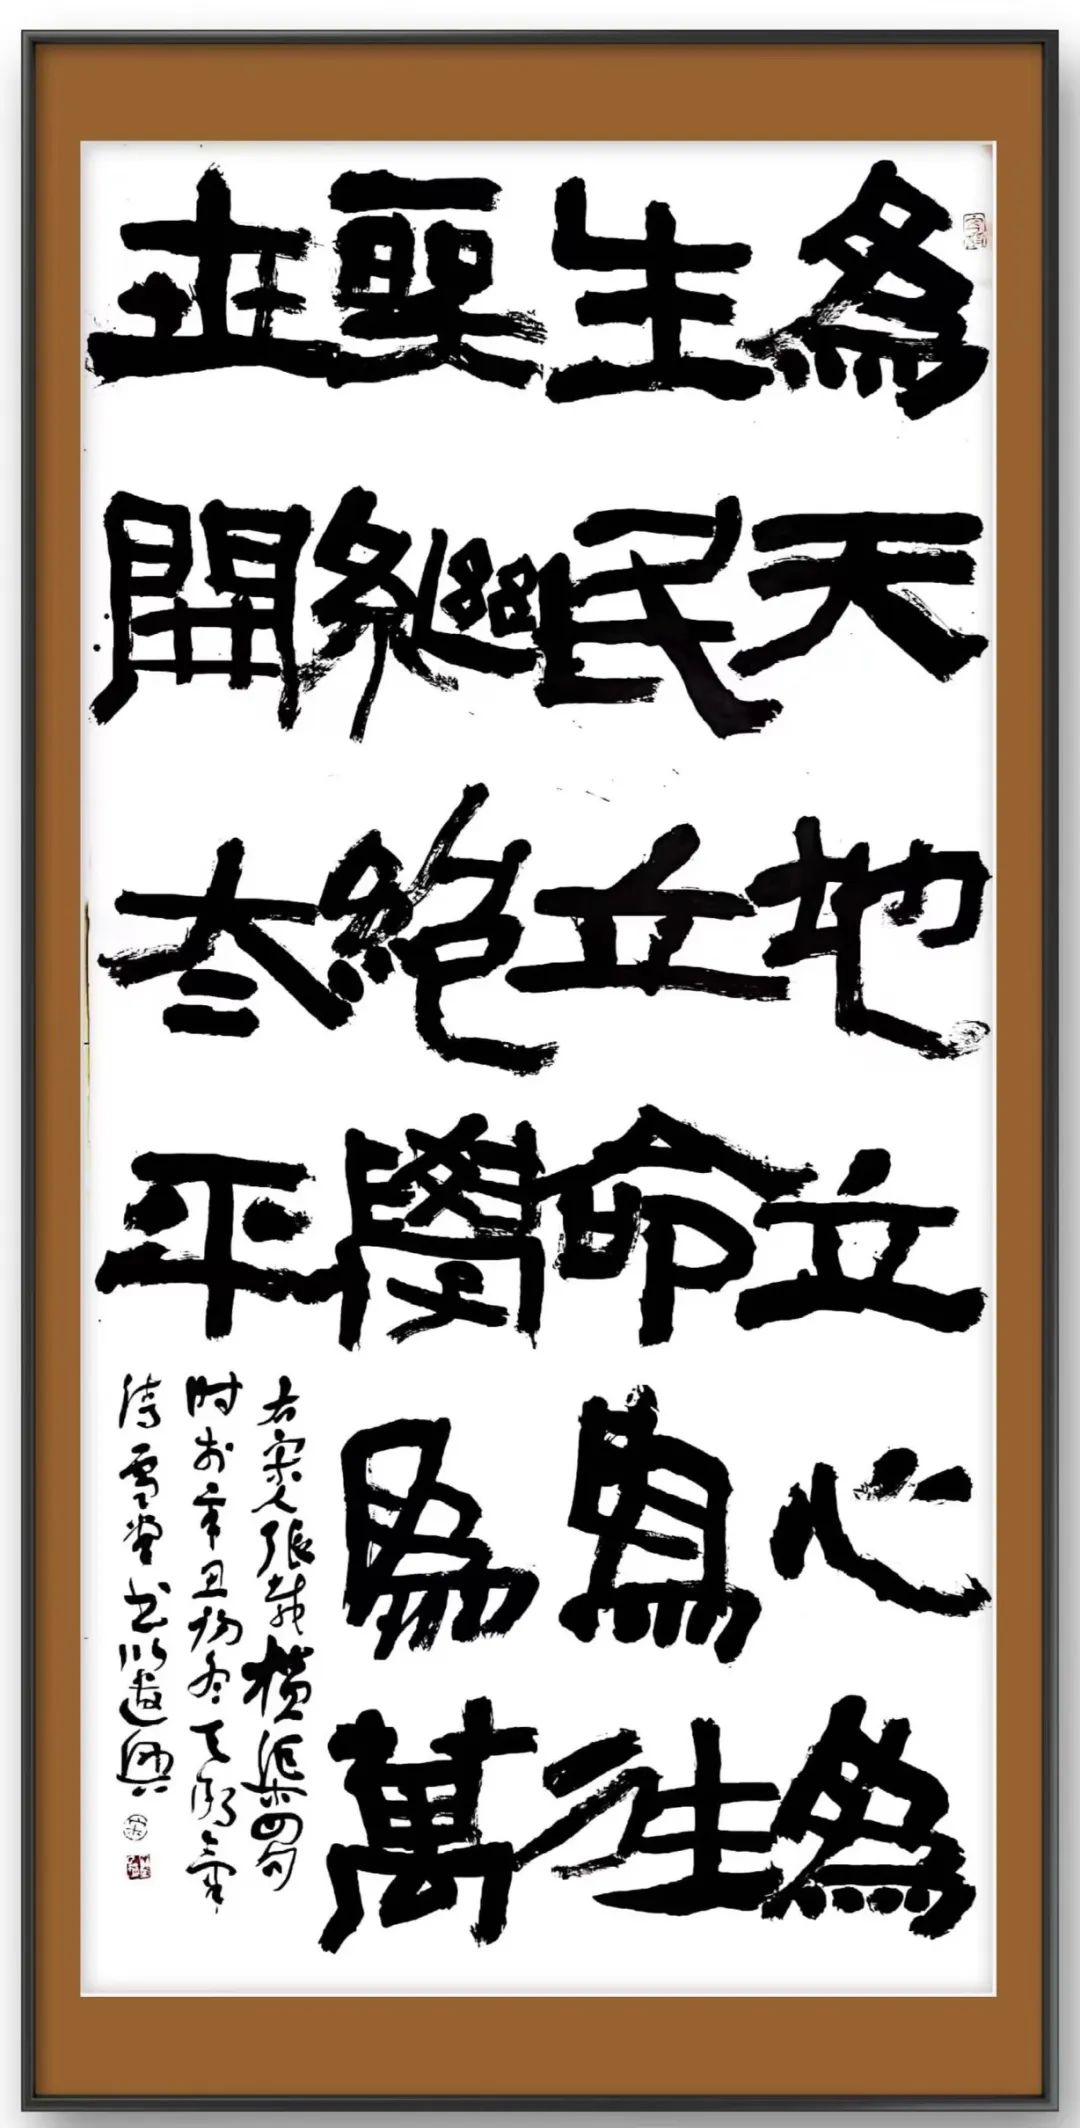 為天地立心為
生民立命為往
聖繼絕學為萬
世開太平
右宋人張載橫渠四句
时於辛丑初冬
雪堂书以遣興